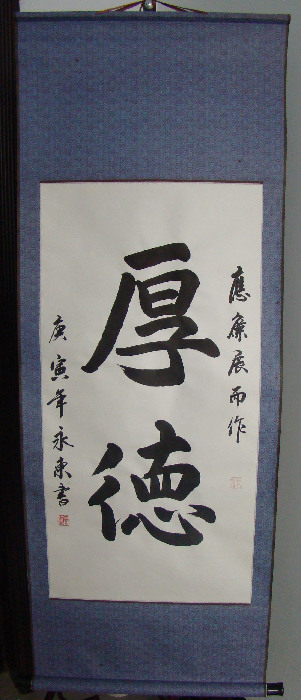 應廉展而作
厚德
庚寅年永東書